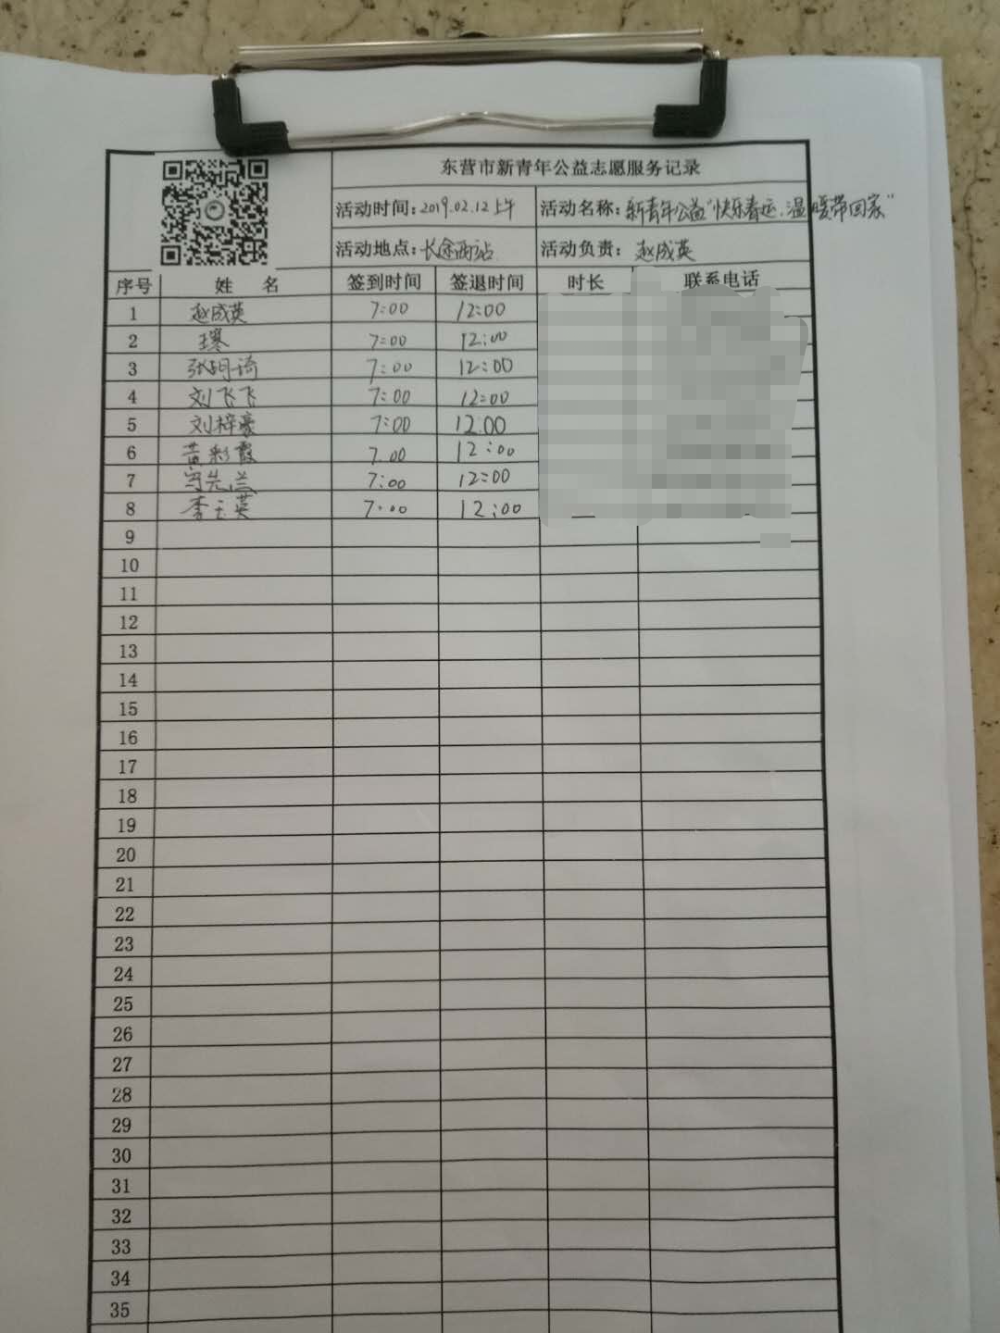 东营市新青年公益志愿服务记录
活动时间:2019.02.12上午 活动名称:新青年公益"快乐春运、温暖带回家"
活动地点:长途西站 活动负责:赵成英
序号 姓 名 签到时间 签退时间 时长 联系电话
1 赵成英 7:00 12:00
2 7:00 12:00
3 张明琦 7:00 12:00
4 刘飞飞 7:00 12:00
5 刘梓豪 7:00 12:00
6 黄彩霞 7.00 12:00
7 7:00 12:00
8 李玉英 7:00 12:00
9
10
11
12
13
14
15
16
17
18
19
20
21
22
23
24
25
26
27
28
29
30
31
32
33
34
35